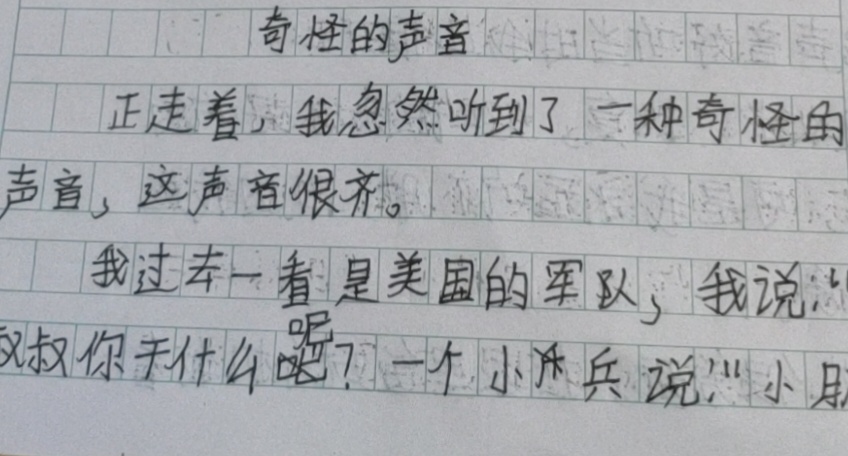 奇怪的声音
正走着，我忽然听到了一种奇怪的
声音，这声音很齐。
我过去一看是美国的军队，我说：“
叔叔你干什么呢？一个小兵说：“小朋